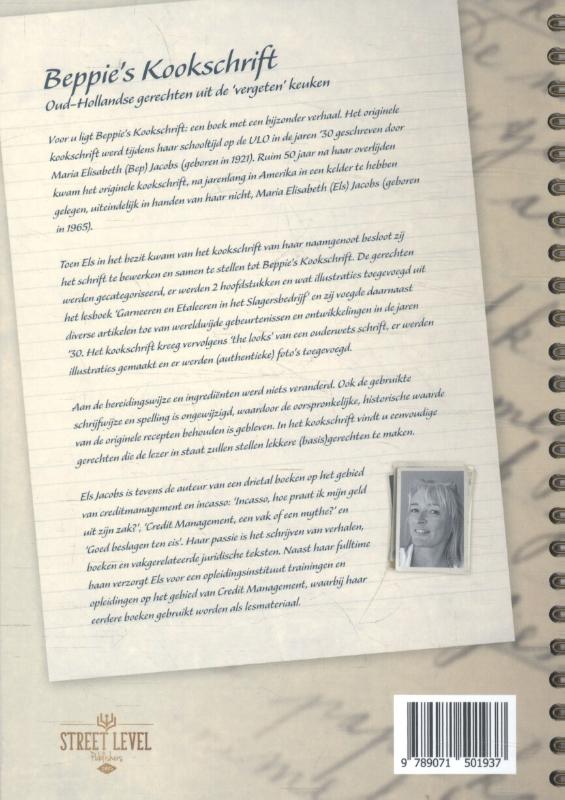 Beppie's Kookschrift
Oud-Hollandse gerechten uit de 'vergeten' keuken
Voor u ligt Beppie's Kookschrift: een boek met een bijzonder verhaal. Het originele
kookschrift werd tijdens haar schooltijd op de ULO in de jaren '30 geschreven door
Maria Elisabeth (Bep) Jacobs (geboren in 1921). Ruim 50 jaar na haar overlijden
kwam het originele kookschrift, na jarenlang in Amerika in een kelder te hebben
gelegen, uiteindelijk in handen van haar nicht, Maria Elisabeth (Els) Jacobs (geboren
in 1965).
Toen Els in het bezit kwam van het kookschrift van haar naamgenoot besloot zij
het schrift te bewerken en samen te stellen tot Beppie's Kookschrift. De gerechten
werden gecategoriseerd, er werden 2 hoofdstukken en wat illustraties toegevoegd uit
het lesboek 'Garneeren en Etaleeren in het Slagersbedrijf' en zij voegde daarnaast
diverse artikelen toe van wereldwijde gebeurtenissen en ontwikkelingen in de jaren
'30. Het kookschrift kreeg vervolgens 'the looks' van een ouderwets schrift, er werden
illustraties gemaakt en er werden (authentieke) foto's toegevoegd.
Aan de bereidingswijze en ingrediënten werd niets veranderd. Ook de gebruikte
schrijfwijze en spelling is ongewijzigd, waardoor de oorspronkelijke, historische waarde
van de originele recepten behouden is gebleven. In het kookschrift vindt u eenvoudige
gerechten die de lezer in staat zullen stellen lekkere (basis)gerechten te maken.
Els Jacobs is tevens de auteur van een drietal boeken op het gebied
van creditmanagement en incasso: 'Incasso, hoe praat ik mijn geld
uit zijn zak?', 'Credit Management, een vak of een mythe?' en
'Goed beslagen ten eis'. Haar passie is het schrijven van verhalen,
boeken en vakgerelateerde juridische teksten. Naast haar fulltime
baan verzorgt Els voor een opleidingsinstituut trainingen en
opleidingen op het gebied van Credit Management, waarbij haar
eerdere boeken gebruikt worden als lesmateriaal.
STREET LEVEL
Publishers
9 789071 501937